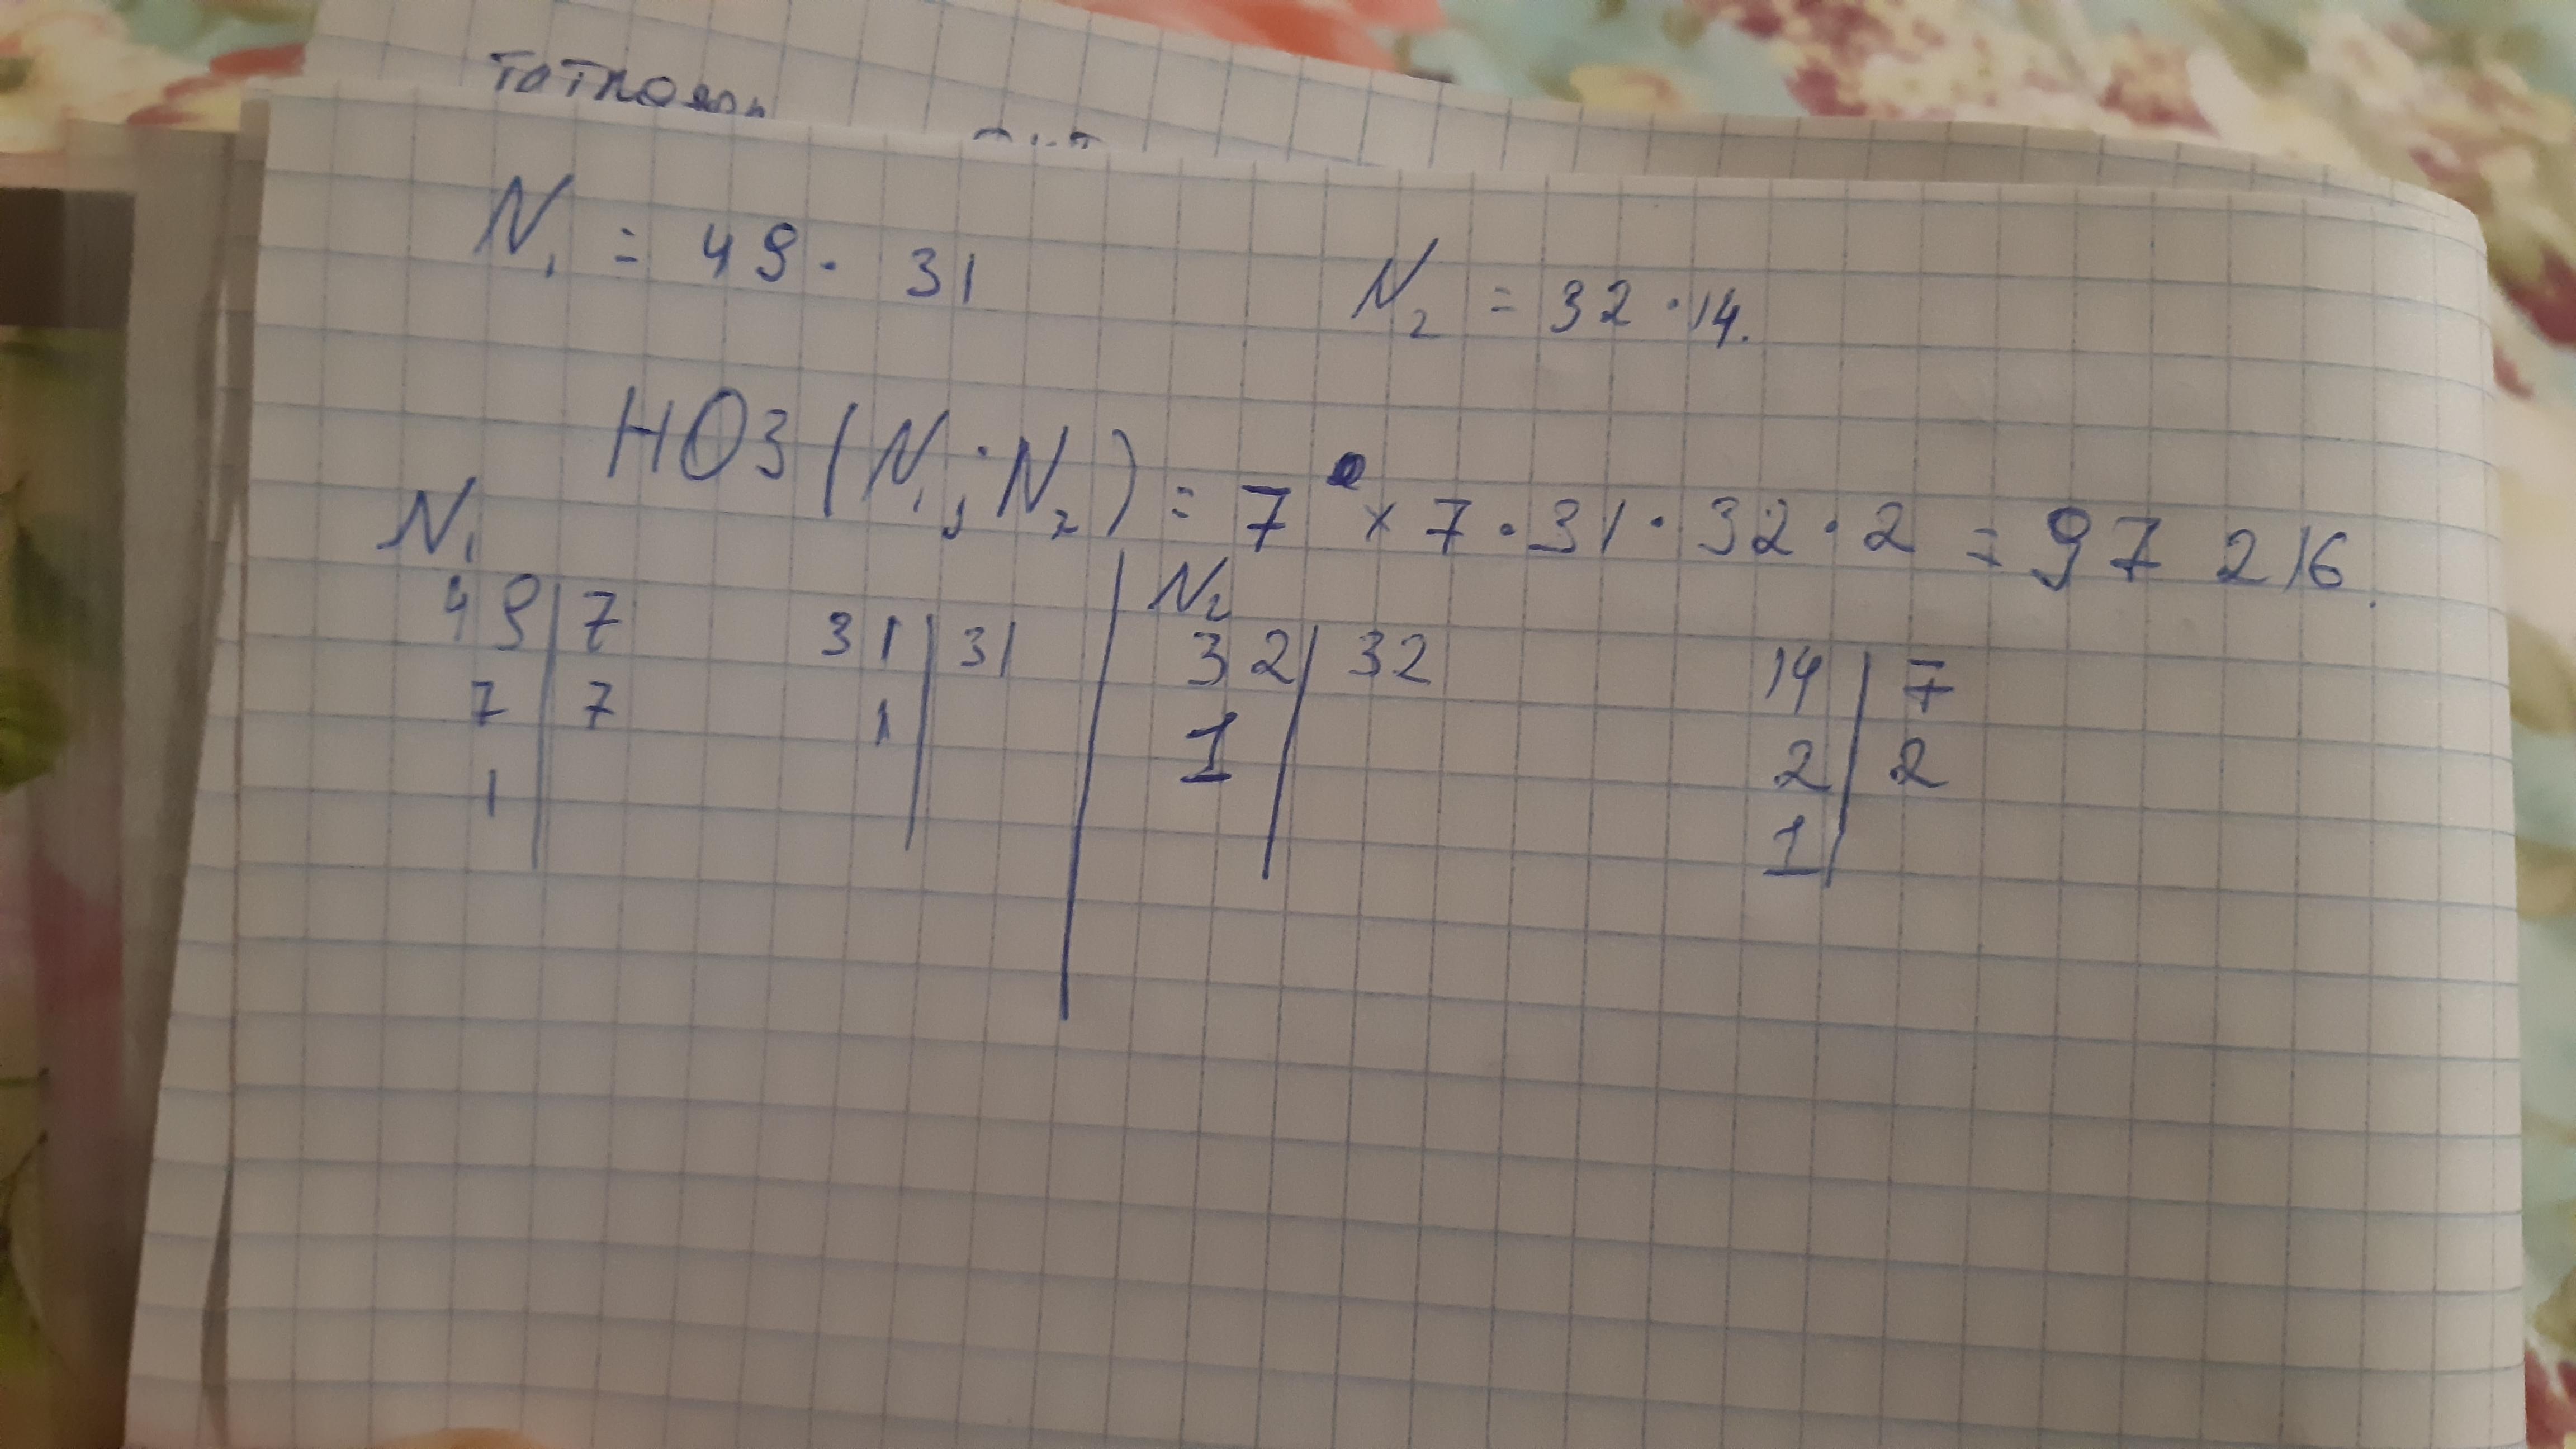 N₁ = 49 · 31
N₂ = 32 · 14.
НОЗ (N₁; N₂) = 7 × 7 · 31 · 32 · 2 = 97 216.
N₁
49 | 7
7 | 7
1
31 | 31
1
N₂
32 | 32
1
14 | 7
2 | 2
1